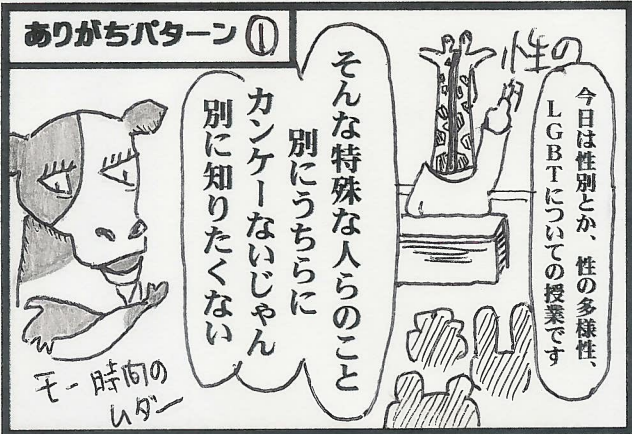 ありがちパターン①
性の
今日は性別とか、性の多様性、
LGBTについての授業です
そんな特殊な人らのこと
別にうちらに
カンケーないじゃん
別に知りたくない
モー時間の
ムダー